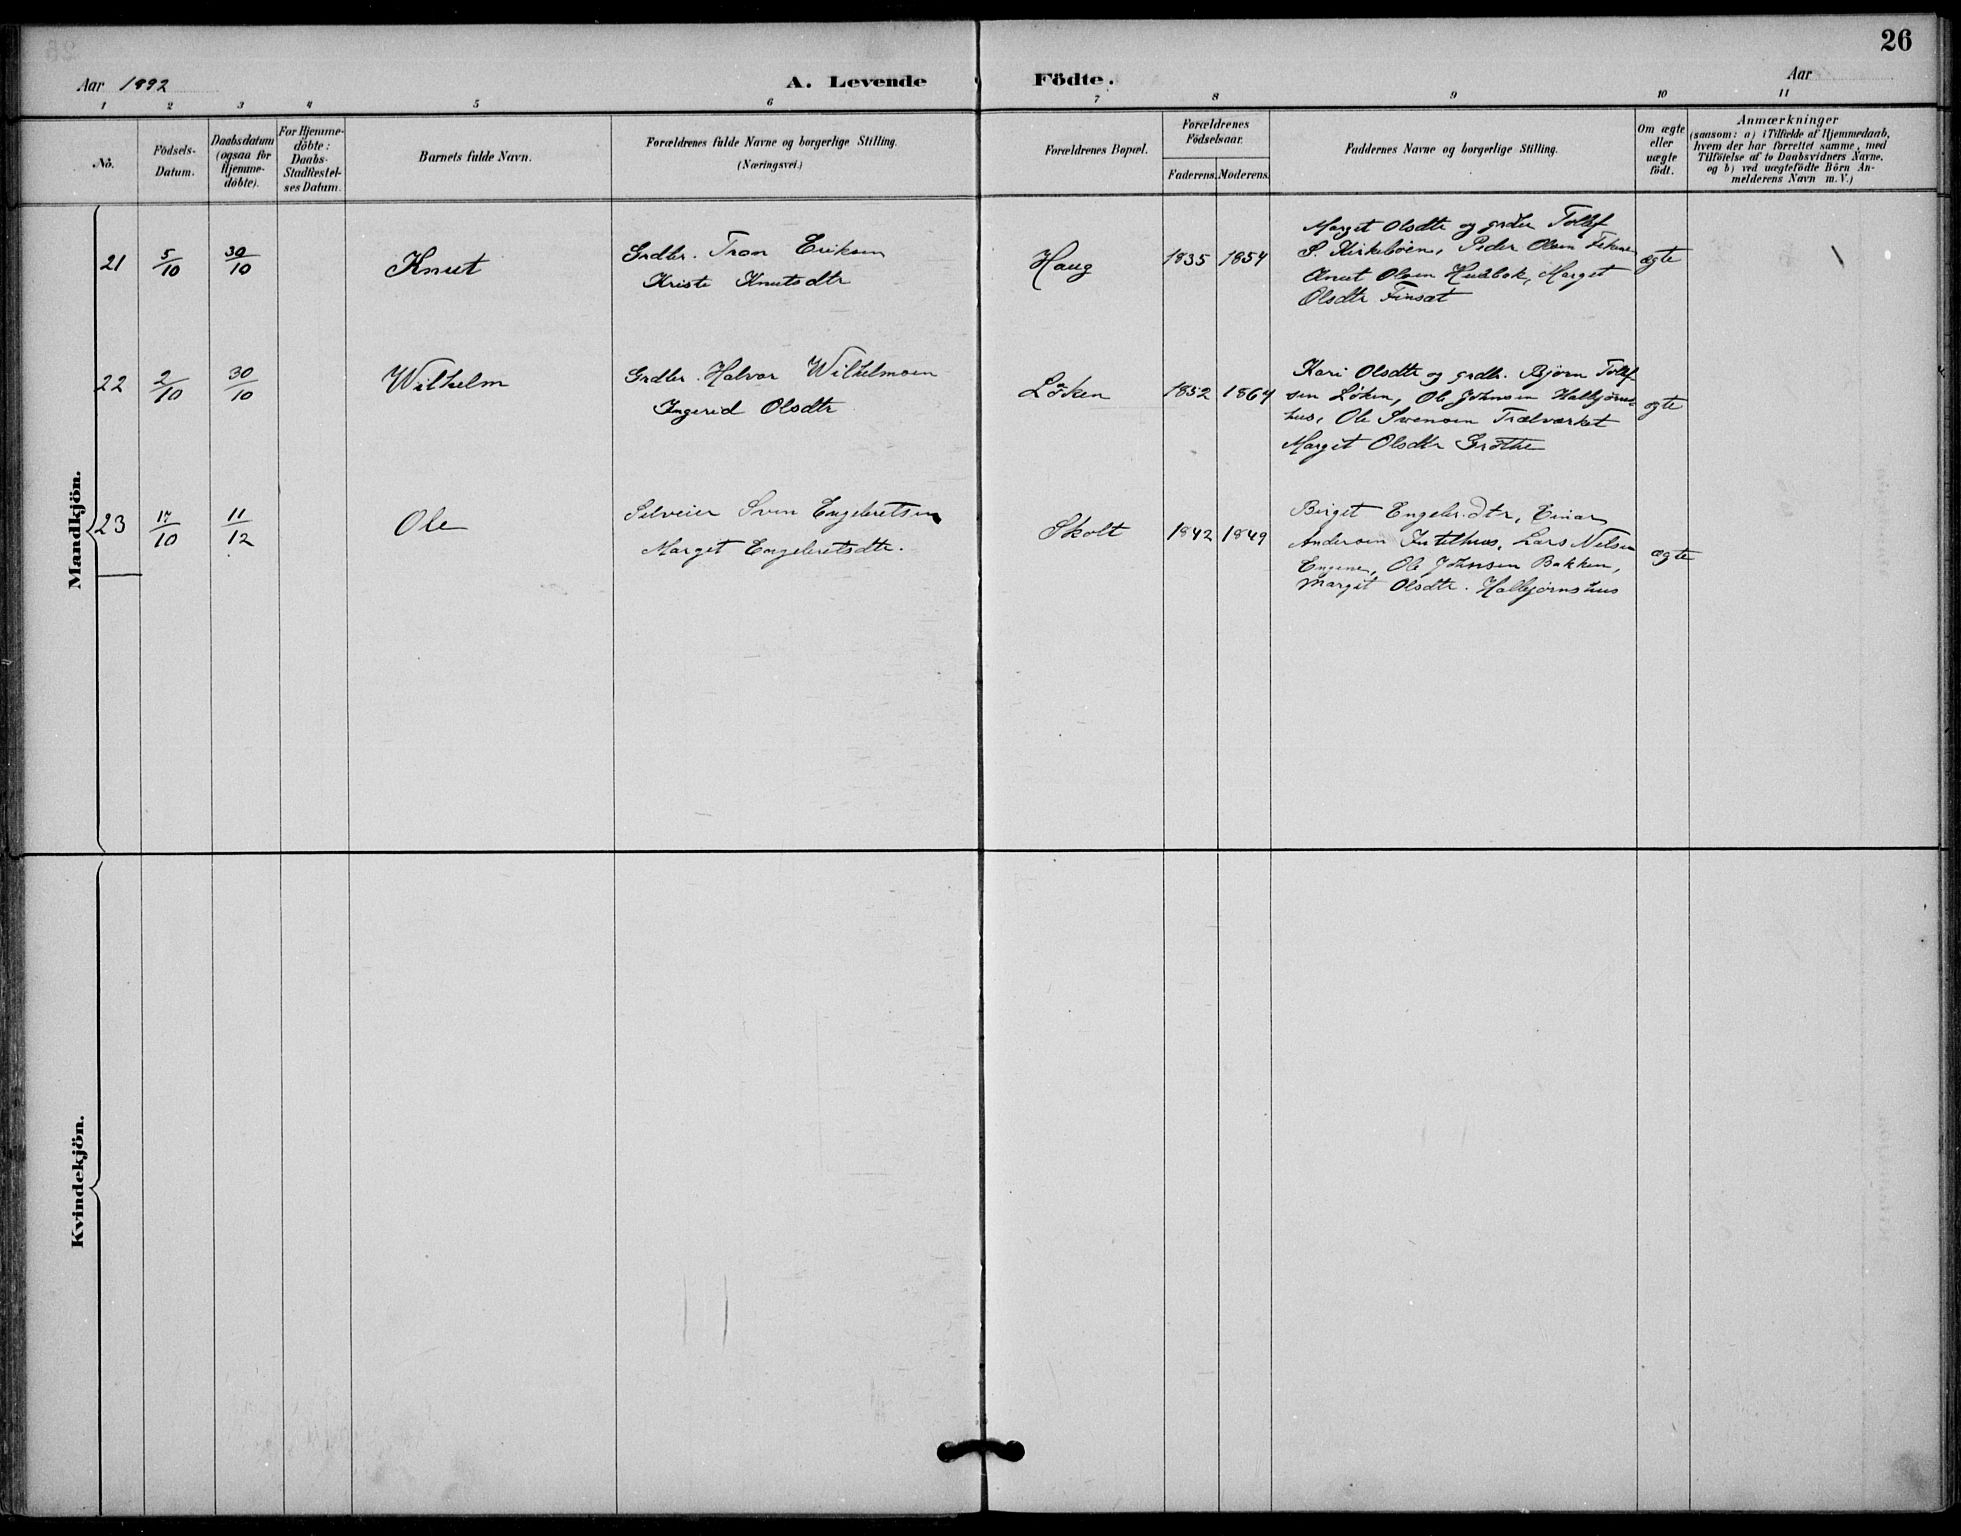 26
Aar 1892
A. Levende Födte.
Aar
1 2 3 4 5 6 7 8 9 10 11
No.
Födsels-
Datum.
Daabsdatum
(ogsaa for
Hjemme-
döbte).
For Hjemme-
döbte:
Daabs-
Stadfæstel-
ses Datum.
Barnets fulde Navn.
Forældrenes fulde Navne og borgerlige Stilling.
(Næringsvei.)
Forældrenes Bopæl.
Forældrenes
Födselsaar.
Faderens. Moderens.
Faddernes Navne og borgerlige Stilling.
Om ægte
eller
uægte
födt.
Anmærkninger
(saasom: a) i Tilfælde af Hjemmedaab,
hvem der har forrettet samme, med
Tilföielse af to Daabsvidners Navne,
og b) ved uægtefödte Börn An-
melderens Navn m. V.)
Mandkjön.
21 5/10 30/10 Knut
Grdbr. Tron Eriksen
Kristi Knutsdtr
Haug 1835 1854
Marget Olsdtr og grdbr Tollef
S. Kirkeböen, Peder Olsen
Knut Olsen Marget
Olsdtr Finset
ægte
22 2/10 30/10 Wilhelm
Grdbr. Halvor Wilhelmsen
Ingerid Olsdtr
Löken 1852 1864
Kari Olsdtr og grdb. Björn Tollef
sen Löken, Ole Johnsen Halbjörns
hus, Ole Svensen Trælværket
Marget Olsdtr Gröthe
ægte
23 17/10 11/12 Ole
Selveier Sven Engebretsen
Marget Engebretsdtr.
Skolt 1842 1849
Birget Engebr.dtr, Einar
Andersen Lars Nilsen
Engene, Ole Johnsen Bakken,
Margit Olsdtr. Halbjörnshus
ægte
Kvindekjön.